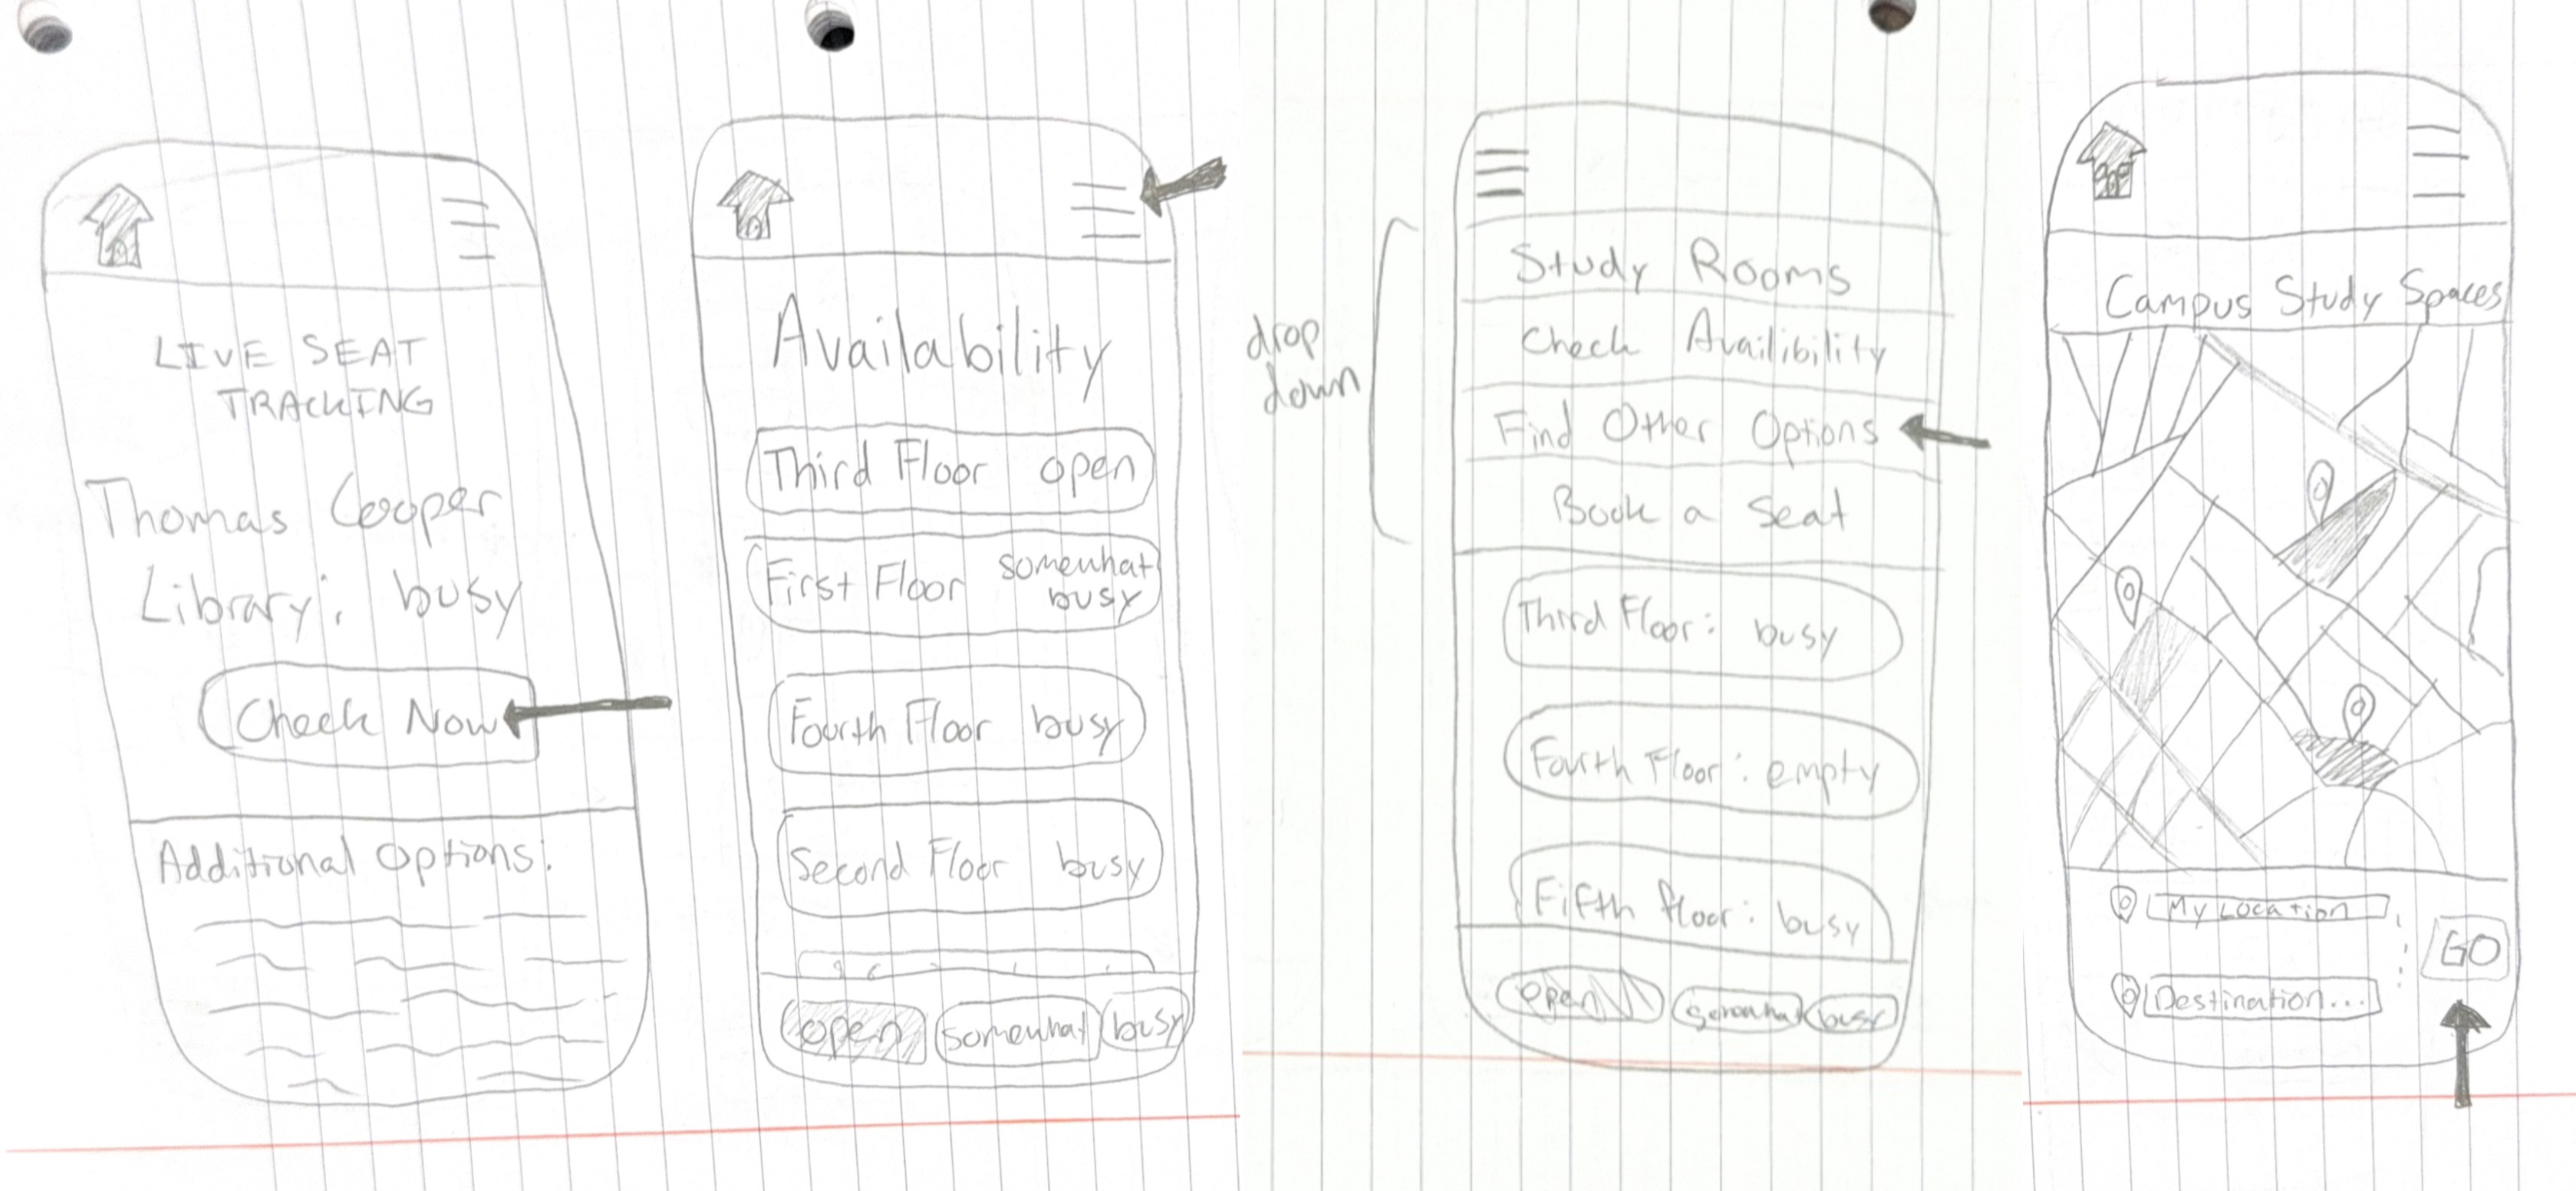 LIVE SEAT
TRACKING
Thomas Cooper
Library: busy
Check Now
Additional Options:
Availability
Third Floor open
First Floor somewhat
busy
Fourth Floor busy
Second Floor busy
open somewhat busy
drop
down
Study Rooms
Check Availibility
Find Other Options
Book a Seat
Third Floor: busy
Fourth Floor: empty
Fifth floor: busy
open somewhat busy
Campus Study Spaces
My Location
GO
Destination...